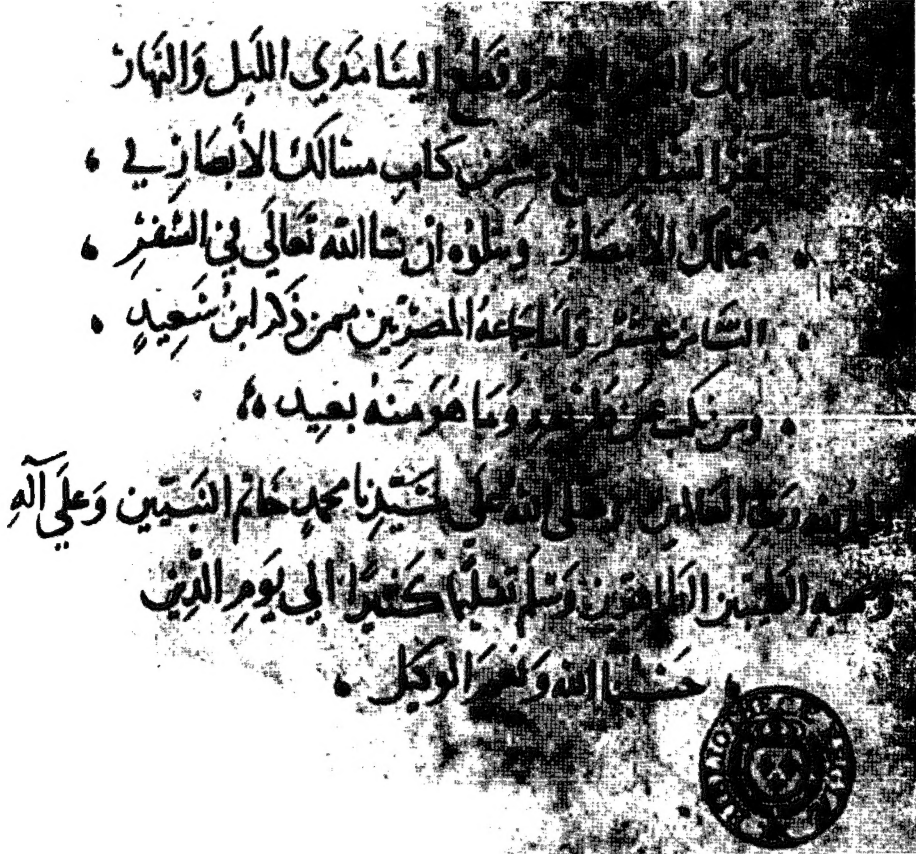 وقطع الينا مدي الليل والنهار
السفر من كتاب مسالك الابصار في
ممالك الامصار وتتلوه ان شا الله تعالي في السفر
السادس عشر واما جماعة المصريين ممن ذكر ابن سعيد
ومن نكب عن طريقه وما هو منه بعيد
والحمد لله رب العالمين وصلى الله على سيدنا محمد خاتم النبيين وعلي آله
وصحبه الطيبين الطاهرين وسلم تسليما كثيرا الي يوم الدين
حسبنا الله ونعم الوكيل
BIBLIOTHECÆ REGIÆ